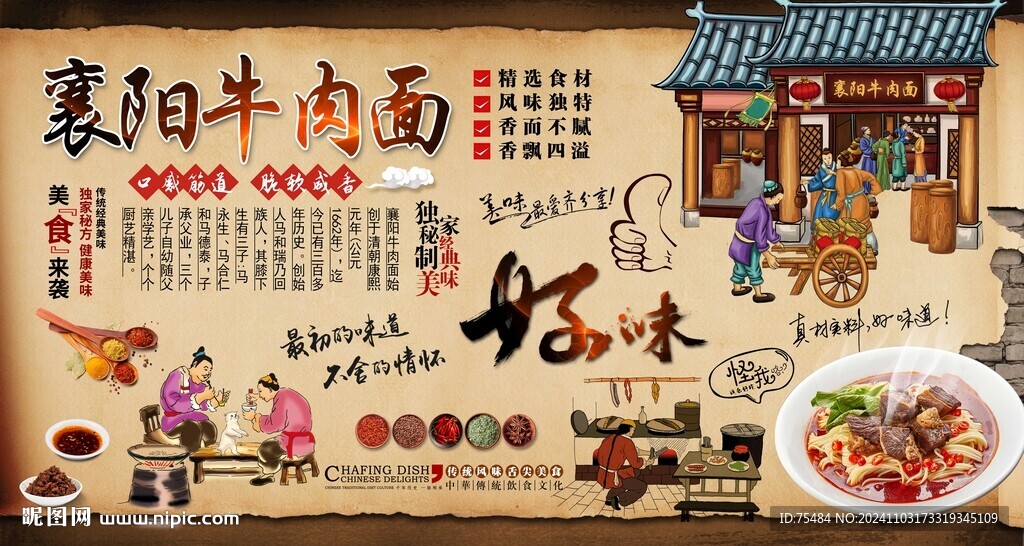 襄阳牛肉面
口感筋道 脆软咸香
精选食材
风味独特
香而不腻
香飘四溢
襄阳牛肉面
传统经典美味
独家秘方 健康美味
美『食』来袭
襄阳牛肉面始
创于清朝康熙
元年（公元
1662年），迄
今已有三百多
年历史。创始
人马和瑞乃回
族人，其膝下
生有三子：马
永生、马合仁
和马德泰，子
承父业，三个
儿子自幼随父
亲学艺，个个
厨艺精湛。
独家秘制
经典美味
美味最爱齐分享！
好味
最初的味道
不舍的情怀
真材实料，好味道！
怪我
CHAFING DISH
CHINESE DELIGHTS
CHINESE TRADITIONAL DIET CULTURE
传统风味舌尖美食
中華傳統飲食文化
昵图网 www.nipic.com
ID:75484 NO:20241103173319345109